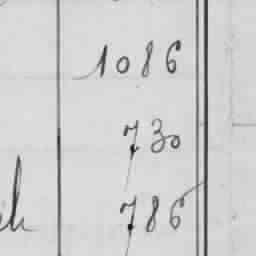 1086
730
786